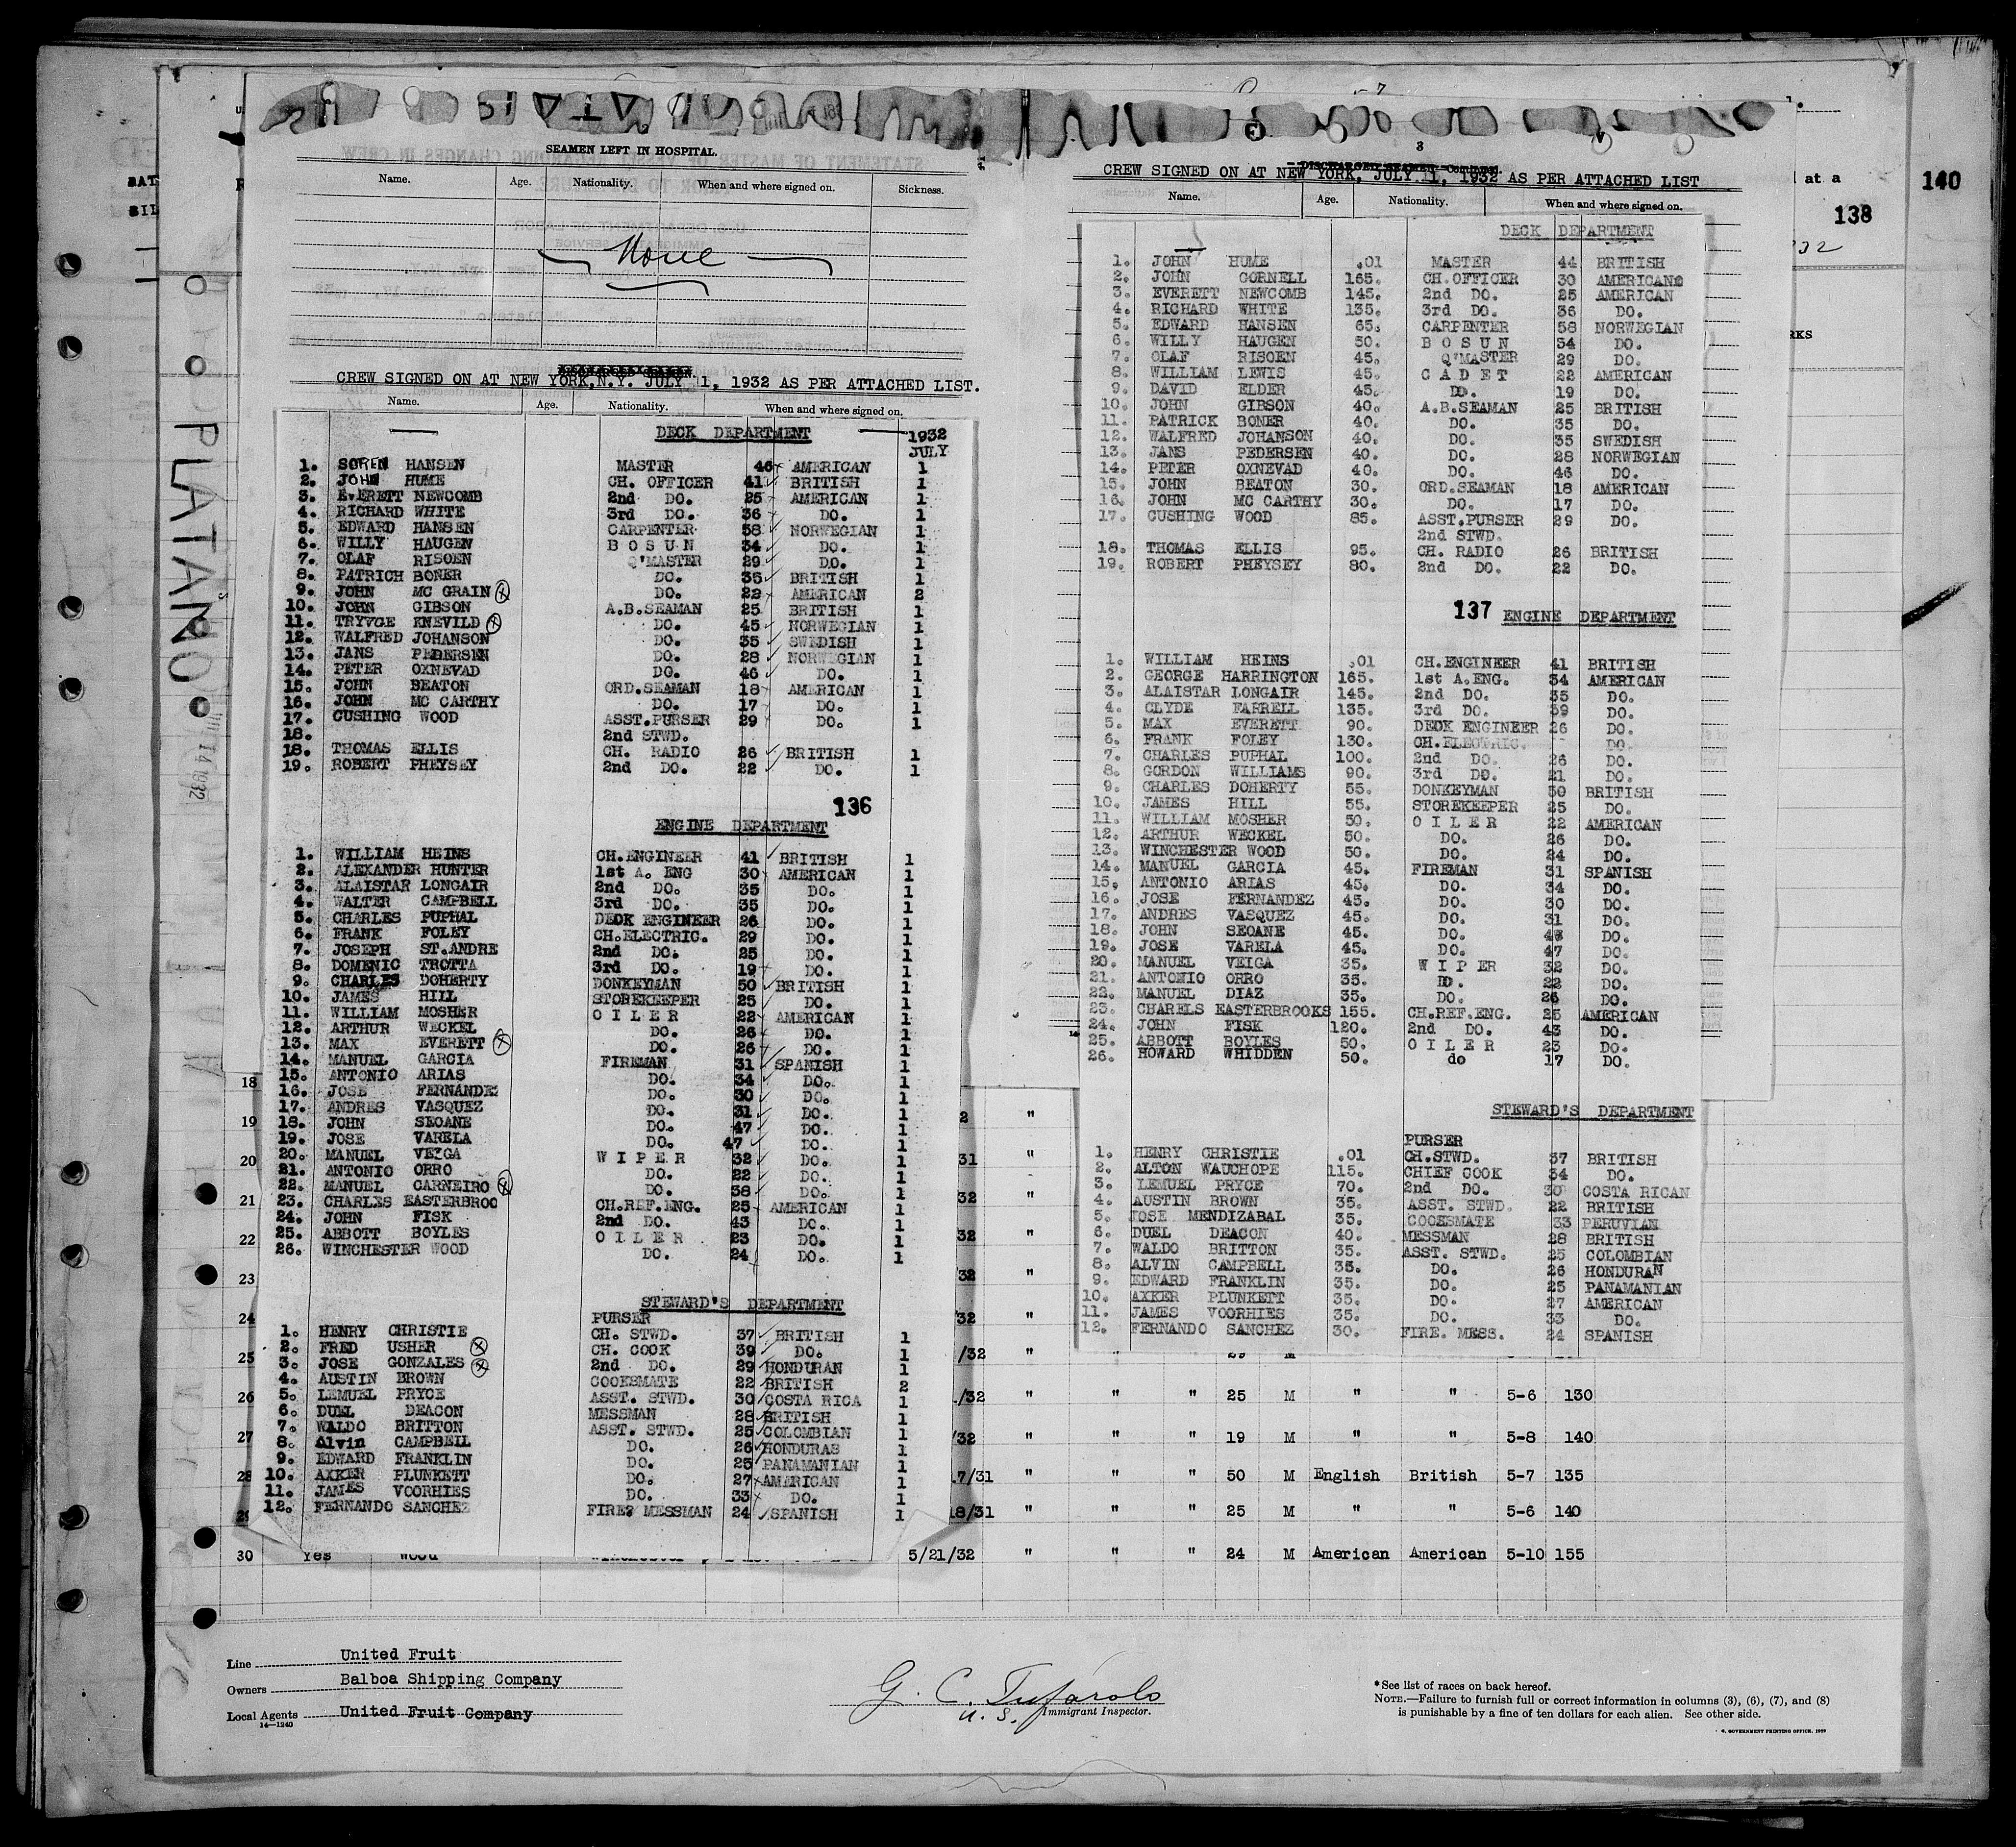 140
138
at a
PLATANO
SEAMEN LEFT IN HOSPITAL.
Name. Age. Nationality. When and where signed on. Sickness.
None
CREW SIGNED ON AT NEW YORK,N.Y. JULY 1, 1932 AS PER ATTACHED LIST.
Name. Age. Nationality. When and where signed on.
DECK DEPARTMENT 1932
JULY
1. SOREN HANSEN MASTER 46 AMERICAN 1
2. JOHN HUME CH. OFFICER 41 BRITISH 1
3. EVERETT NEWCOMB 2nd DO. 25 AMERICAN 1
4. RICHARD WHITE 3rd DO. 36 DO. 1
5. EDWARD HANSEN CARPENTER 58 NORWEGIAN 1
6. WILLY HAUGEN B O S U N 34 DO. 1
7. OLAF RISOEN Q'MASTER 29 DO. 1
8. PATRICH BONER DO. 35 BRITISH 1
9. JOHN MC GRAIN DO. 22 AMERICAN 2
10. JOHN GIBSON A.B.SEAMAN 25 BRITISH 1
11. TRYVGE KNEVILD DO. 45 NORWEGIAN 1
12. WALFRED JOHANSON DO. 35 SWEDISH 1
13. JANS PEDERSEN DO. 28 NORWEGIAN 1
14. PETER OXNEVAD DO. 46 DO. 1
15. JOHN BEATON ORD.SEAMAN 18 AMERICAN 1
16. JOHN MC CARTHY DO. 17 DO. 1
17. CUSHING WOOD ASST.PURSER 29 DO. 1
18. 2nd STWD.
18. THOMAS ELLIS CH. RADIO 26 BRITISH 1
19. ROBERT PHEYSEY 2nd DO. 22 DO. 1
136
ENGINE DEPARTMENT
1. WILLIAM HEINS CH.ENGINEER 41 BRITISH 1
2. ALEXANDER HUNTER 1st A. ENG 30 AMERICAN 1
3. ALAISTAR LONGAIR 2nd DO. 35 DO. 1
4. WALTER CAMPBELL 3rd DO. 35 DO. 1
5. CHARLES PUPHAL DECK ENGINEER 26 DO. 1
6. FRANK FOLEY CH.ELECTRIC. 29 DO. 1
7. JOSEPH ST.ANDRE 2nd DO. 25 DO. 1
8. DOMENIC TROTTA 3rd DO. 19 DO. 1
9. CHARLES DOHERTY DONKEYMAN 50 BRITISH 1
10. JAMES HILL STOREKEEPER 25 DO. 1
11. WILLIAM MOSHER O I L E R 22 AMERICAN 1
12. ARTHUR WECKEL DO. 26 DO. 1
13. MAX EVERETT DO. 26 DO. 1
14. MANUEL GARCIA FIREMAN 31 SPANISH 1
15. ANTONIO ARIAS DO. 34 DO. 1
16. JOSE FERNANDEZ DO. 30 DO. 1
17. ANDRES VASQUEZ DO. 31 DO. 1
18. JOHN SEOANE DO. 47 DO. 1
19. JOSE VARELA DO. 47 DO. 1
20. MANUEL VEIGA W I P E R 32 DO. 1
21. ANTONIO ORRO DO. 22 DO. 1
22. MANUEL CARNEIRO DO. 38 DO. 1
23. CHARLES EASTERBROO CH.REF.ENG. 25 AMERICAN 1
24. JOHN FISK 2nd DO. 43 DO. 1
25. ABBOTT BOYLES O I L E R 23 DO. 1
26. WINCHESTER WOOD DO. 24 DO. 1
STEWARD'S DEPARTMENT
PURSER
1. HENRY CHRISTIE CH. STWD. 37 BRITISH 1
2. FRED USHER CH. COOK 39 DO. 1
3. JOSE GONZALES 2nd DO. 29 HONDURAN 1
4. AUSTIN BROWN COOKSMATE 22 BRITISH 2
5. LEMUEL PRYCE ASST. STWD. 30 COSTA RICA 1
6. DUEL DEACON MESSMAN 28 BRITISH 1
7. WALDO BRITTON ASST. STWD. 25 COLOMBIAN 1
8. Alvin CAMPBELL DO. 26 HONDURAS 1
9. EDWARD FRANKLIN DO. 25 PANAMANIAN 1
10. AXKER PLUNKETT DO. 27 AMERICAN 1
11. JAMES VOORHIES DO. 33 DO. 1
12. FERNANDO SANCHEZ FIRE? MESSMAN 24 SPANISH 1
3
CREW SIGNED ON AT NEW YORK, JULY 1, 1932 AS PER ATTACHED LIST
Name. Age. Nationality. When and where signed on.
DECK DEPARTMENT
1. JOHN HUME .01 MASTER 44 BRITISH
2. JOHN GORNELL 165. CH.OFFICER 30 AMERICAN
3. EVERETT NEWCOMB 145. 2nd DO. 25 AMERICAN
4. RICHARD WHITE 135. 3rd DO. 36 DO.
5. EDWARD HANSEN 65. CARPENTER 58 NORWEGIAN
6. WILLY HAUGEN 50. B O S U N 34 DO.
7. OLAF RISOEN 45. Q'MASTER 29 DO.
8. WILLIAM LEWIS 45. C A D E T 22 AMERICAN
9. DAVID ELDER 45. DO. 19 DO.
10. JOHN GIBSON 40. A.B.SEAMAN 25 BRITISH
11. PATRICK BONER 40. DO. 35 DO.
12. WALFRED JOHANSON 40. DO. 35 SWEDISH
13. JANS PEDERSEN 40. DO. 28 NORWEGIAN
14. PETER OXNEVAD 40. DO. 46 DO.
15. JOHN BEATON 30. ORD.SEAMAN 18 AMERICAN
16. JOHN MC CARTHY 30. DO. 17 DO.
17. CUSHING WOOD 85. ASST.PURSER 29 DO.
2nd STWD.
18. THOMAS ELLIS 95. CH. RADIO 26 BRITISH
19. ROBERT PHEYSEY 80. 2nd DO. 22 DO.
137 ENGINE DEPARTMENT
1. WILLIAM HEINS .01 CH.ENGINEER 41 BRITISH
2. GEORGE HARRINGTON 165. 1st A.ENG. 34 AMERICAN
3. ALAISTAR LONGAIR 145. 2nd DO. 35 DO.
4. CLYDE FARRELL 135. 3rd DO. 39 DO.
5. MAX EVERETT 90. DECK ENGINEER 26 DO.
6. FRANK FOLEY 130. CH.ELECTRIC. DO
7. CHARLES PUPHAL 100. 2nd DO. 26 DO.
8. GORDON WILLIAMS 90. 3rd DO. 21 DO.
9. CHARLES DOHERTY 55. DONKEYMAN 50 BRITISH
10. JAMES HILL 55. STOREKEEPER 25 DO.
11. WILLIAM MOSHER 50. O I L E R 22 AMERICAN
12. ARTHUR WECKEL 50. DO. 26 DO.
13. WINCHESTER WOOD 50. DO. 24 DO.
14. MANUEL GARCIA 45. FIREMAN 31 SPANISH
15. ANTONIO ARIAS 45. DO. 34 DO.
16. JOSE FERNANDEZ 45. DO. 30 DO.
17. ANDRES VASQUEZ 45. DO. 31 DO.
18. JOHN SEOANE 45. DO. 47 DO.
19. JOSE VARELA 45. DO. 47 DO.
20. MANUEL VEIGA 35. W I P E R 32 DO.
21. ANTONIO ORRO 35. DO. 22 DO.
22. MANUEL DIAZ 35. DO. 26 DO.
23. CHARELS EASTERBROOKS 155. CH.REF.ENG. 25 AMERICAN
24. JOHN FISK 120. 2nd DO. 43 DO.
25. ABBOTT BOYLES 50. O I L E R 23 DO.
26. HOWARD WHIDDEN 50. do 17 DO.
STEWARD'S DEPARTMENT
PURSER
1. HENRY CHRISTIE .01 CH.STWD. 37 BRITISH
2. ALTON WAUCHOPE 115. CHIEF COOK 34 DO.
3. LEMUEL PRYCE 70. 2nd DO. 30 COSTA RICAN
4. AUSTIN BROWN 35. ASST. STWD. 22 BRITISH
5. JOSE MENDIZABAL 35. COOKSMATE 33 PERUVIAN
6. DUEL DEACON 40. MESSMAN 28 BRITISH
7. WALDO BRITTON 35. ASST. STWD. 25 COLOMBIAN
8. ALVIN CAMPBELL 35. DO. 26 HONDURAN
9. EDWARD FRANKLIN 35. DO. 25 PANAMANIAN
10. AXKER PLUNKETT 35. DO. 27 AMERICAN
11. JAMES VOORHIES 35. DO. 33 DO.
12. FERNANDO SANCHEZ 30. FIRE. MESS. 24 SPANISH
18
19
20
21
22
23
24
25 /32 " " " 29 M
26 /32 " " " 25 M " " 5-6 130
27 /32 " " " 19 M " " 5-8 140
28 7/31 " " " 50 M English British 5-7 135
29 18/31 " " " 25 M " " 5-6 140
30 Yes Wood Winchester 5/21/32 " " " 24 M American American 5-10 155
Line United Fruit
Owners Balboa Shipping Company
Local Agents United Fruit Company
14—1240
G. C. Tufarolo
U. S. Immigrant Inspector.
*See list of races on back hereof.
NOTE.—Failure to furnish full or correct information in columns (3), (6), (7), and (8)
is punishable by a fine of ten dollars for each alien. See other side.